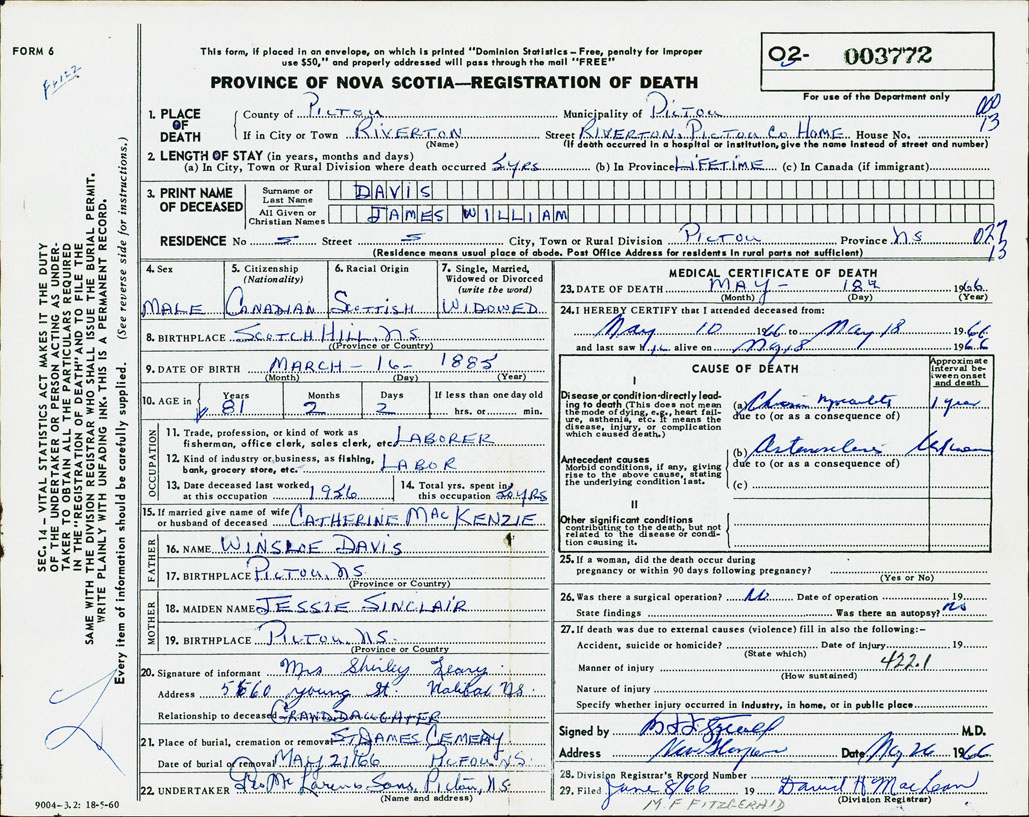 FORM 6
This form, if placed in an envelope, on which is printed "Dominion Statistics – Free, penalty for improper
use $50," and properly addressed will pass through the mail "FREE"
02- 003772
PROVINCE OF NOVA SCOTIA—REGISTRATION OF DEATH
For use of the Department only
1. PLACE OF DEATH
County of PICTOU Municipality of PICTOU
If in City or Town RIVERTON Street RIVERTON, PICTOU CO HOME House No.
(Name) (If death occurred in a hospital or institution, give the name instead of street and number)
13
2. LENGTH OF STAY (in years, months and days)
(a) In City, Town or Rural Division where death occurred 2yrs (b) In Province LIFETIME (c) In Canada (if immigrant)
3. PRINT NAME OF DECEASED
Surname or Last Name DAVIS
All Given or Christian Names JAMES WILLIAM
RESIDENCE No Street City, Town or Rural Division PICTOU Province NS 027
13
(Residence means usual place of abode. Post Office Address for residents in rural parts not sufficient)
4. Sex
MALE
5. Citizenship (Nationality)
CANADIAN
6. Racial Origin
SCOTTISH
7. Single, Married, Widowed or Divorced (write the word)
WIDOWED
8. BIRTHPLACE SCOTCH HILL, NS.
(Province or Country)
9. DATE OF BIRTH MARCH - 16 - 1885
(Month) (Day) (Year)
10. AGE in Years Months Days If less than one day old
81 2 2 hrs. or min.
OCCUPATION
11. Trade, profession, or kind of work as
fisherman, office clerk, sales clerk, etc. LABORER
12. Kind of industry or business, as fishing,
bank, grocery store, etc. LABOR
13. Date deceased last worked
at this occupation 1956
14. Total yrs. spent in
this occupation YRS
15. If married give name of wife
or husband of deceased CATHERINE MACKENZIE
FATHER
16. NAME WINSLOE DAVIS
17. BIRTHPLACE PICTOU, NS.
(Province or Country)
MOTHER
18. MAIDEN NAME JESSIE SINCLAIR
19. BIRTHPLACE PICTOU, NS.
(Province or Country)
20. Signature of informant Mrs Shirley Leary
Address 5560 young St. Halifax NS.
Relationship to deceased GRANDDAUGHTER
21. Place of burial, cremation or removal ST. JAMES CEMERY
Date of burial or removal MAY 21/66 NS.
22. UNDERTAKER Geo McLarens Sons, Pictou, NS.
(Name and address)
9004-3.2: 18-5-60
MEDICAL CERTIFICATE OF DEATH
23. DATE OF DEATH MAY - 18th 1966
(Month) (Day) (Year)
24. I HEREBY CERTIFY that I attended deceased from:
May 10 1966 to May 18 1966
and last saw him alive on 1966
CAUSE OF DEATH
Approximate interval between onset and death
I
Disease or condition directly leading to death (This does not mean the mode of dying, e.g., heart failure, asthenia, etc. It means the disease, injury, or complication which caused death.)
(a) 1 year
due to (or as a consequence of)
Antecedent causes
Morbid conditions, if any, giving rise to the above cause, stating the underlying condition last.
(b)
due to (or as a consequence of)
(c)
II
Other significant conditions
contributing to the death, but not related to the disease or condition causing it.
25. If a woman, did the death occur during
pregnancy or within 90 days following pregnancy?
(Yes or No)
26. Was there a surgical operation? No Date of operation 19
State findings Was there an autopsy? No
27. If death was due to external causes (violence) fill in also the following:–
Accident, suicide or homicide? Date of injury 19
(State which)
422.1
Manner of injury
(How sustained)
Nature of injury
Specify whether injury occurred in industry, in home, or in public place
Signed by M.D.
Address New Glasgow Date May 26 1966
28. Division Registrar's Record Number
29. Filed June 8/66 19 David H MacLean
(Division Registrar)
M.F FITZGERALD
SEC. 14 – VITAL STATISTICS ACT MAKES IT THE DUTY
OF THE UNDERTAKER OR PERSON ACTING AS UNDER-
TAKER TO OBTAIN ALL THE PARTICULARS REQUIRED
IN THE "REGISTRATION OF DEATH" AND TO FILE THE
SAME WITH THE DIVISION REGISTRAR WHO SHALL ISSUE THE BURIAL PERMIT.
WRITE PLAINLY WITH UNFADING INK. THIS IS A PERMANENT RECORD.
Every item of information should be carefully supplied. (See reverse side for instructions.)